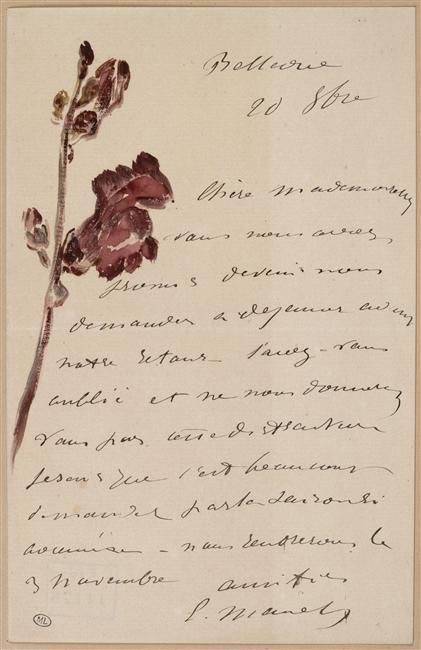 Bellevue
20 8bre
Chère mademoiselle
vous nous aviez
promis de venir nous
demander a dejeuner avant
notre retour l'avez-vous
oublié et ne nous donnerez
vous pas cette distraction
je sais que c'est beaucoup
demander par la saison si
avancée - nous rentrerons le
3 novembre amitiés
E. Manet
ML